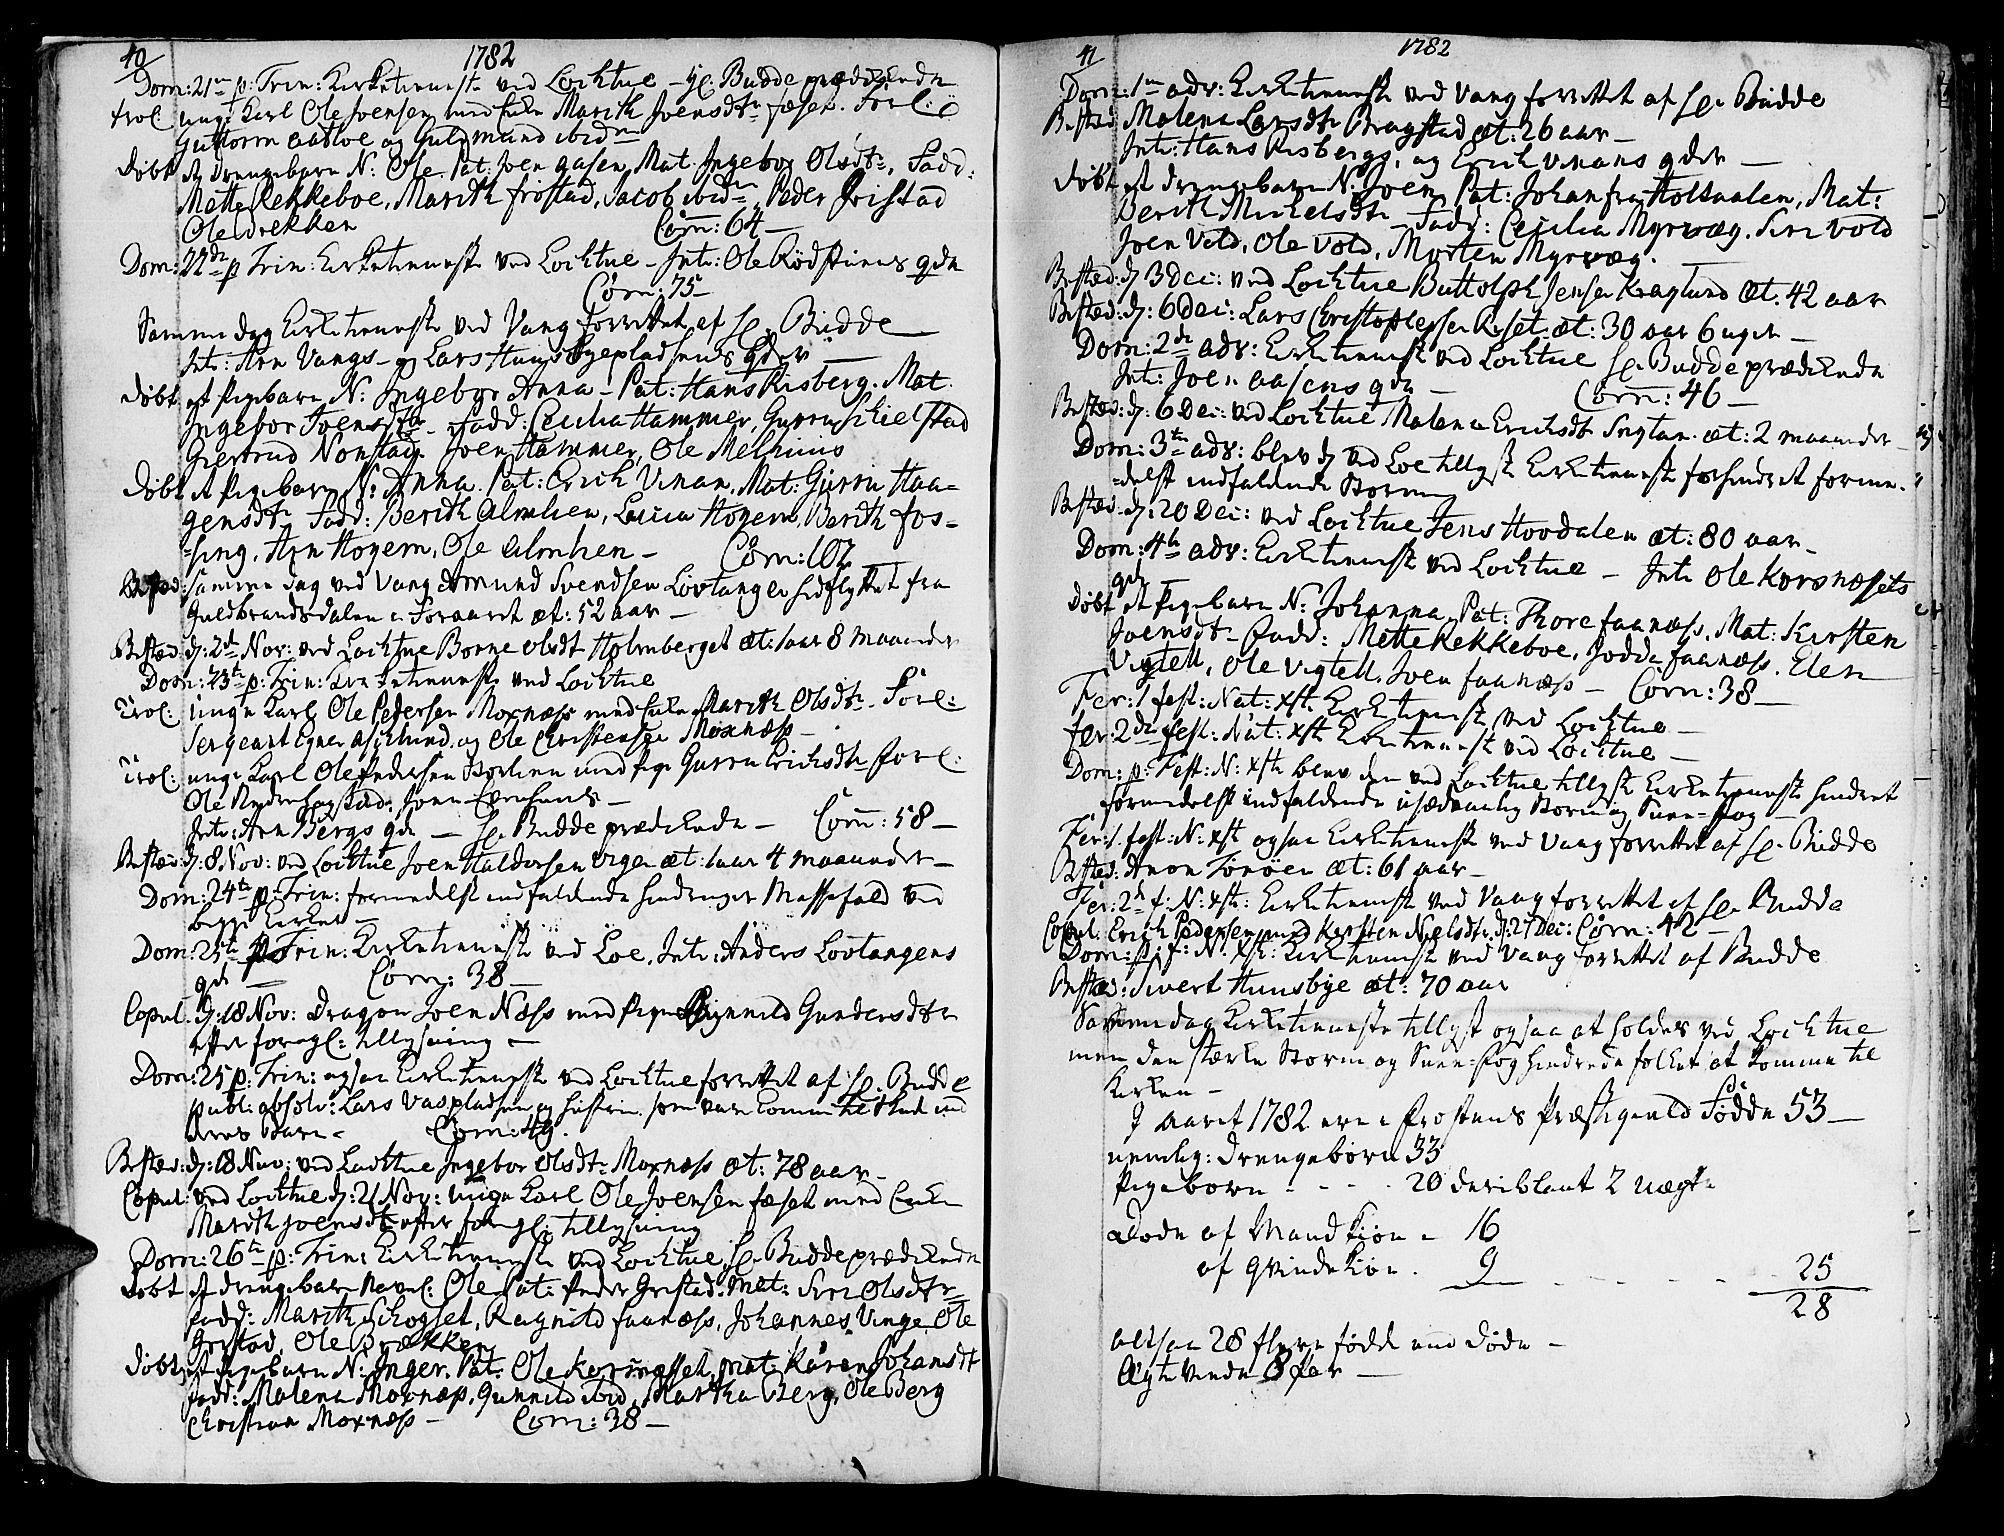 40
1782
Dom: 21de p: Trin: Kirketieneste ved Lochtue – Hr. Budde prædikende
Trol: unge Karl Ole Joensen med Enke Marith Joensdtr fæset. Forl:
Guttorm aatloe og Guldmund ibidm
døbt et drengebarn N: Ole. Pat: Joen aasen, Mat. Ingebor Olsdtr, Fadd:
Mette Rekkeboe, Marith frostad, Jacob ibidm, Peder Gristad
Ole brekken Com: 64 –
Dom: 22de p Trin: Kirketieneste ved Lochtue – Intr: Ole Rødstuens qde
Com: 75 –
Samme dag Kirketieneste ved Vang forrettet af Hr. Budde
Intr: Arn Vangs – og Lars Huusbyepladsens qder –
døbt et Pigebarn N: Ingebor Anna – Pat: Hans Risberg. Mat.
Ingebor Joensdtr – Fadd: Cecilia Hammer, Gurru Schielstad
Giertrud Nonstad Joen Hammer, Ole Melhuus
døbt et Pigebarn N: Anna. Pat: Erich Vinan, Mat: Gurru Haa=
gensdtr Fadd: Berith Almlien, Lucia Hojem, Berith fos=
=sing, Arn Hojem, Ole Almlien – Com: 102
Bested: samme dag ved Vang Amund Svendsen Lovtangen hidflyttet fra
Guldbrandsdalen i Foraaret æt: 52 aar –
Bested: d: 2de Nov: ved Lochtue Borne Olsdt Holmberget æt: 1 aar 8 maaneder
Dom: 23de p: Trin: Kirketieneste ved Lochtue
Trol: unge Karl Ole Petersen Moxnæss med Enke Marith Olsdtr – Forl:
Sergeant Egner Asklund, og Ole Christensen Moxnæss –
Trol: unge Karl Ole Pedersen Storlien med Pige Gurru Erichsdtr Forl:
Ole
Intr: Arn Bergs qde – Hr. Budde prædikende – Com: 58 –
Bested: d: 8 Nov: ved Lochtue Joen Haldorsen Vigen æt: 1 aar 4 maaneder –
Dom: 24de p Trin: formedelst indfaldende hindringer Messefald ved
begge Kirker –
Dom: 25te p Trin: Kirketieneste ved Loe. Intr: Anders Lovtangens
qde – Com: 38 –
Copul. d: 18 Nov: Dragon Joen Næss med Pige Gunnild Gundersdtr
efter foregl: tillysning –
Dom: 25 p: Trin: ogsaa Kirketieneste ved Lochtue forrettet af Hr. Budde
publ: absolv: Lars Vaspladsen og hustru, som var kommen til Skade med
deres Barn – Com: 49.
Bested: d: 18 Nov: ved Lochtue Ingebor Olsdtr Moxnæss æt: 78 aar –
Copul: ved Lochtue d: 21 Nov: unge Karl Ole Joensen fæset med Enke
Marith Joensdt efter foregl: tillysning
Dom: 26te p: Trin: Kirketieneste ved Lochtue, Hr. Budde prædikende
døbt et drengebarn navnl: Ole Pat: Peder Gristad. Mat: Siri Olsdtr
Fadd: Marith Schogset, Ragnild faanæss, Johannes Vinge, Ole
Gristad, Ole Brækken
døbt et Pigebarn N: Inger. Pat: Ole Korsnæsset, Mat: Karen Johansdt
Fadd: Malena Moxnæss, Gunnild ibid, Martha Berg, Ole Berg
Christian Moxnæss – Com: 38 –
41
1782
Dom: 1ste adv: Kirketieneste ved Vang forrettet af Hr. Budde
Bested Malena Larsdtr Bragstad æt: 26 aar –
Intr: Hans Risbergs, og Erich Vinans qder –
døbt et drengebarn N: Joen, Pat: Johan fra Holtaalen, Mat:
Berith Michelsdtr – Fadd: Cecilia Myrvæg, Siri Vold
Joen Vold, Ole Vold, Morten Myrvæg.
Bested: d: 3 Dec: ved Lochtue Buttolph Jensen Kraglund æt. 42 aar
Bested: d: 6 Dec: Lars Christophersen Reset. æt: 30 aar 6 uger –
Dom: 2de adv: Kirketieneste ved Lochtue Hr. Budde prædikende
Intr: Joen aasens qde – Com: 46 –
Bested: d: 6 Dec: ved Lochtue Malena Erichsdt æt: 2 maaneder
Dom: 3de adv: blev d ved Loe tillyste Kirketieneste forhindret forme=
=delst indfaldende Storm
Bested: d: 20 Dec: ved Lochtue Jens Hovdalen æt: 80 aar –
Dom: 4de adv: Kirketieneste ved Lochtue – Intr: Ole Korsnæssets
qde
døbt et Pigebarn N: Johanna, Pat: Thore faanæss, Mat: Kirsten
Joensdtr Fadd: Mette Rekkeboe, Jodde faanæss, Elen
Vigtell, Ole Vigtell, Joen faanæss – Com: 38 –
Fer: 1 fest: Nat: Xsti Kirketieneste ved Lochtue –
Fer: 2de fest: Nat: Xsti Kirketieneste ved Lochtue –
Dom: p: Fest: N: Xsti blev den ved Lochtue tillyste Kirketieneste hindret
formedelst indfaldende usædvanlig Storm og Snee-fog –
Fer: 1. fest: N: Xsti ogsaa Kirketieneste ved Vang forrettet af Hr. Budde
Bested: Anon Tonøen æt: 61 aar –
Fer: 2de f: N: Xsti: Kirketieneste ved Vang forrettet af Hr. Budde
Copul: Erich Pedersen med Kersten Nielsdtr d: 27 Dec: Com: 42 –
Dom: p: f: N: Xsti: Kirketieneste ved Vang forrettet af Budde
Bested: Sivert Huusbye æt: 70 aar
Samme dag Kirketieneste tillyst ogsaa at holdes ved Lochtue
men den stærke Storm og Snee-fog hindrede folket at komme til
Kirken –
I aaret 1782 ere i Frostens Præstegield Fødde 53 –
nemlig: drengebørn 33
Pigebørn – – – – 20 deriblant 2 uægte
Døde af Mandkiøn – 16
af Qvindekiøn. 9 – – – – – 25
28
altsaa 28 flere fødde end døde –
Ægteviede 8 Par –